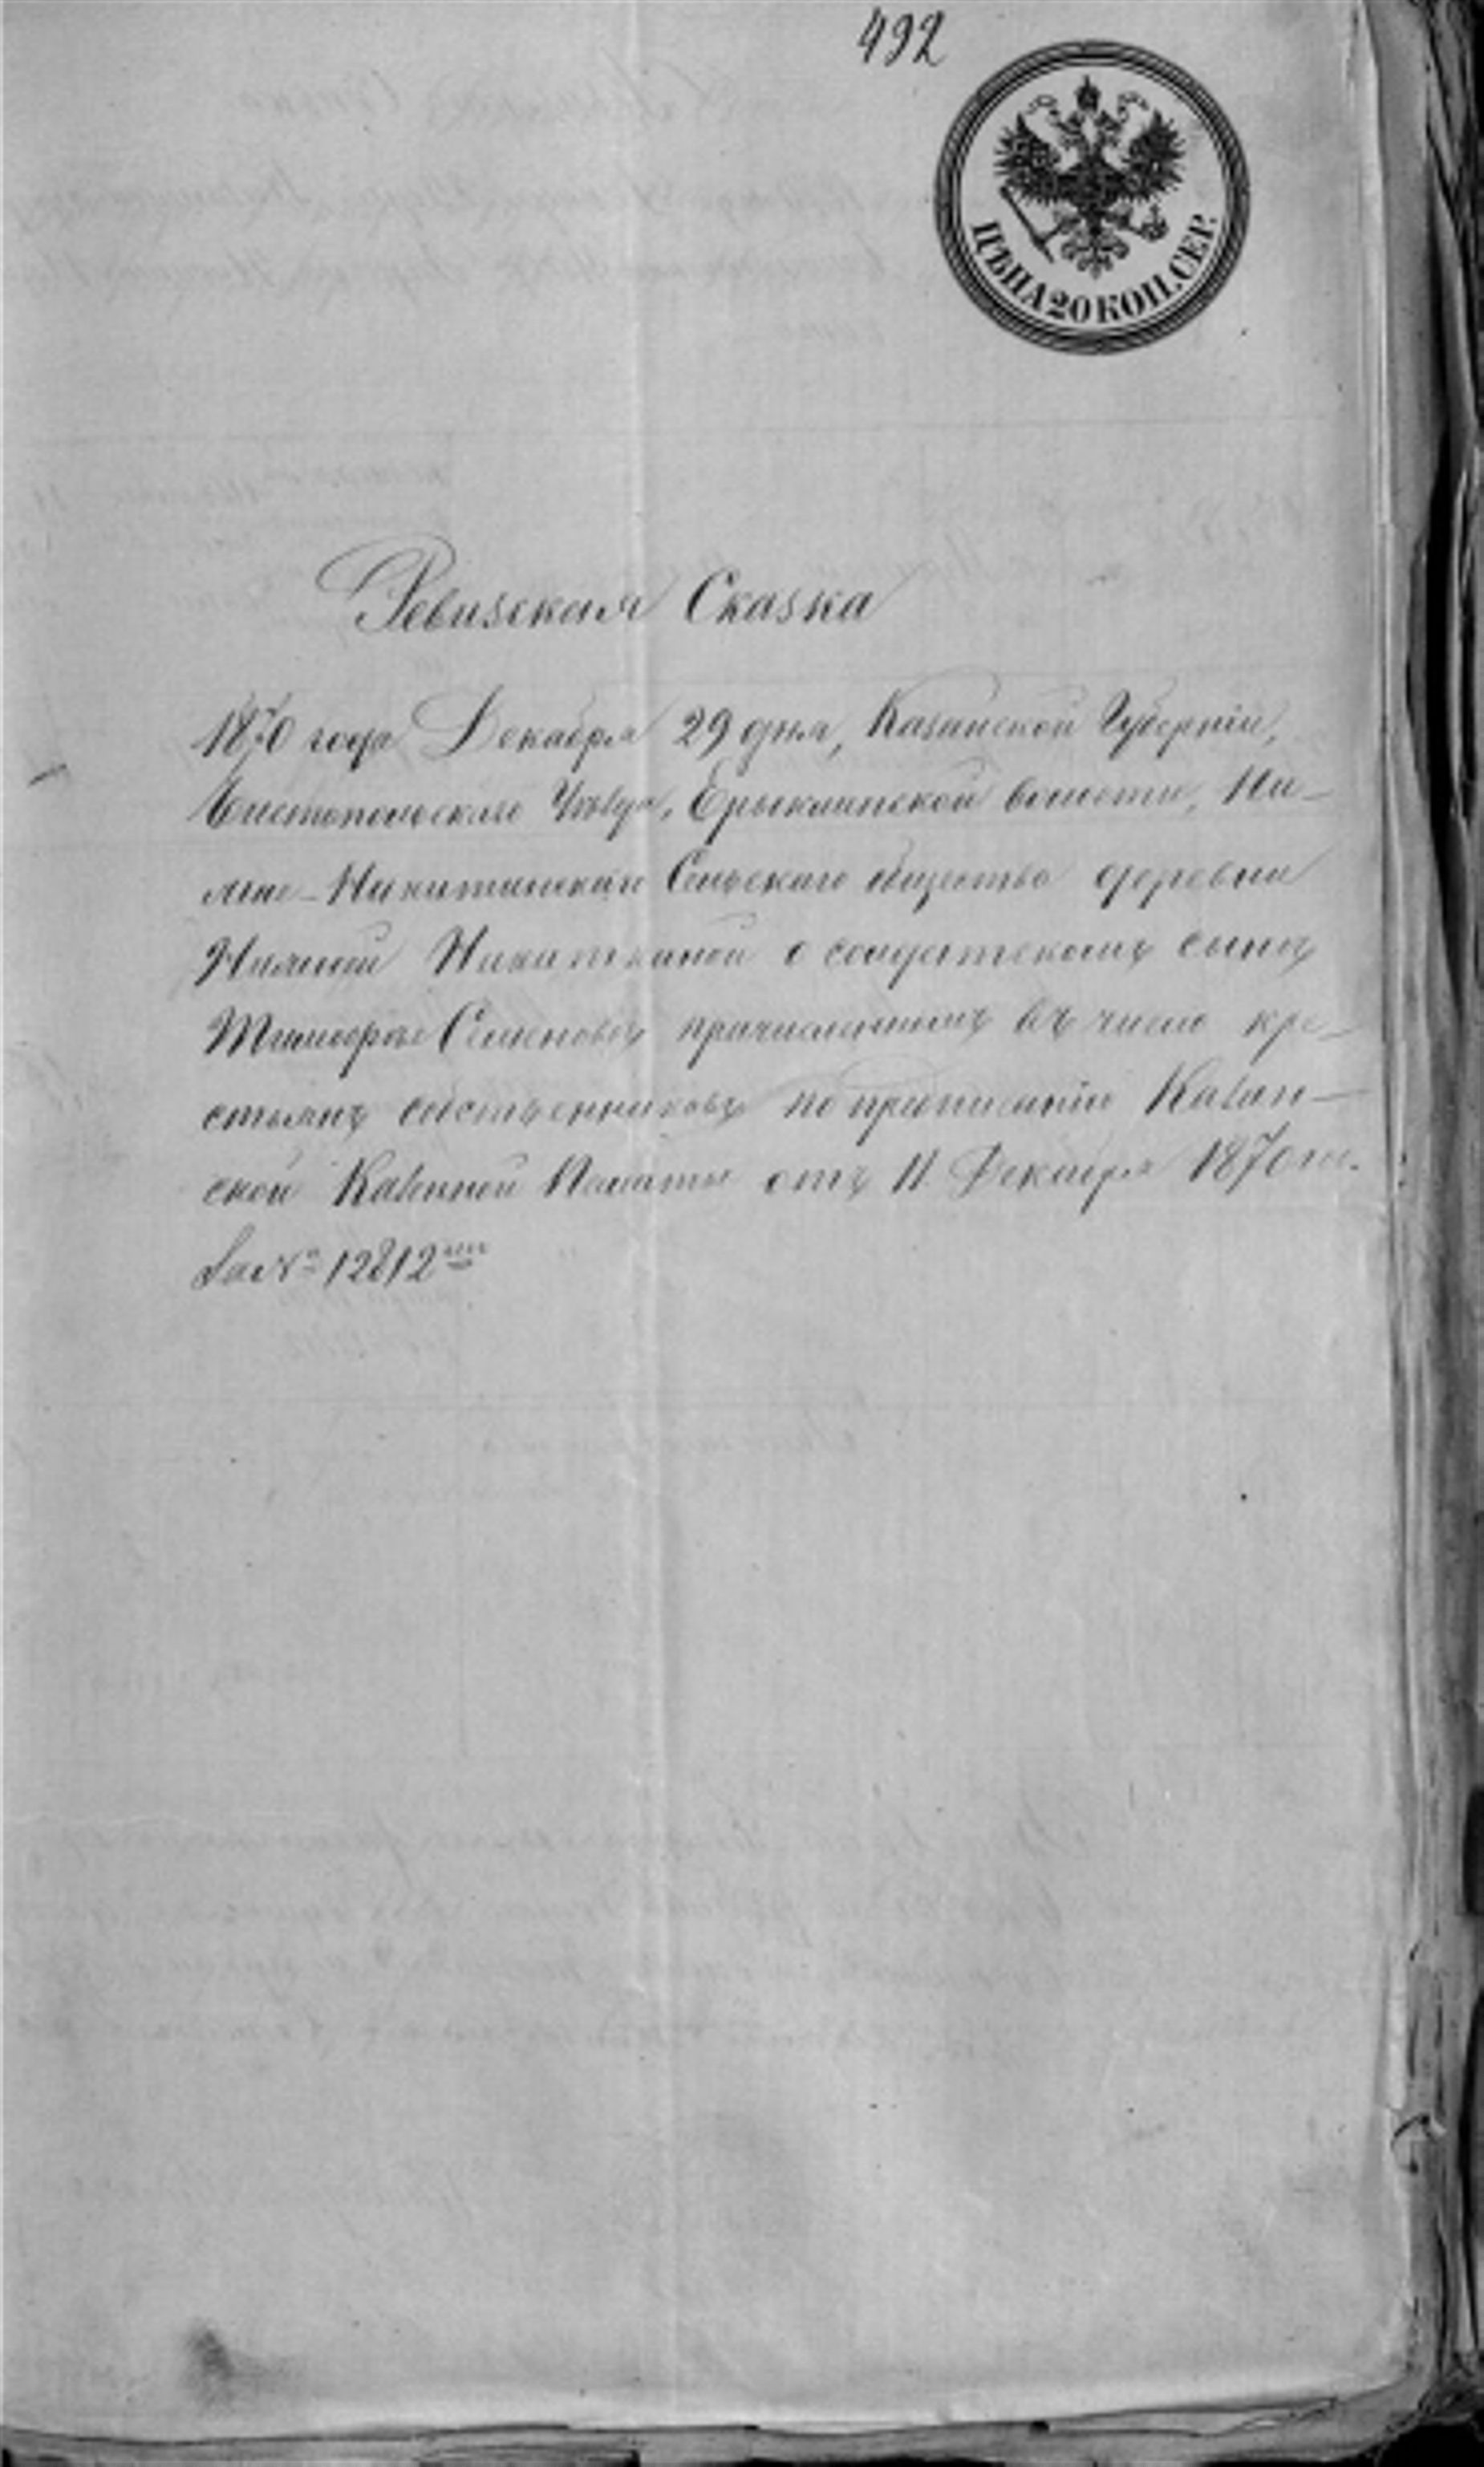 492
ЦѢНА 20 КОП. СЕР.
Ревизская Сказка
1870 года Декабря 29 дня, Казанской Губерніи,
Чистопольскаго Уѣзда, Ерыклинской волости,
Никитинскаго Сельскаго общества деревни
Никиткиной о солдатскомъ сынѣ
Тимофѣе Семеновѣ причисленномъ въ число кре-
стьянъ собственниковъ по предписанію Казан-
ской Казенной Палаты отъ 11 Декабря 1870
За № 12812